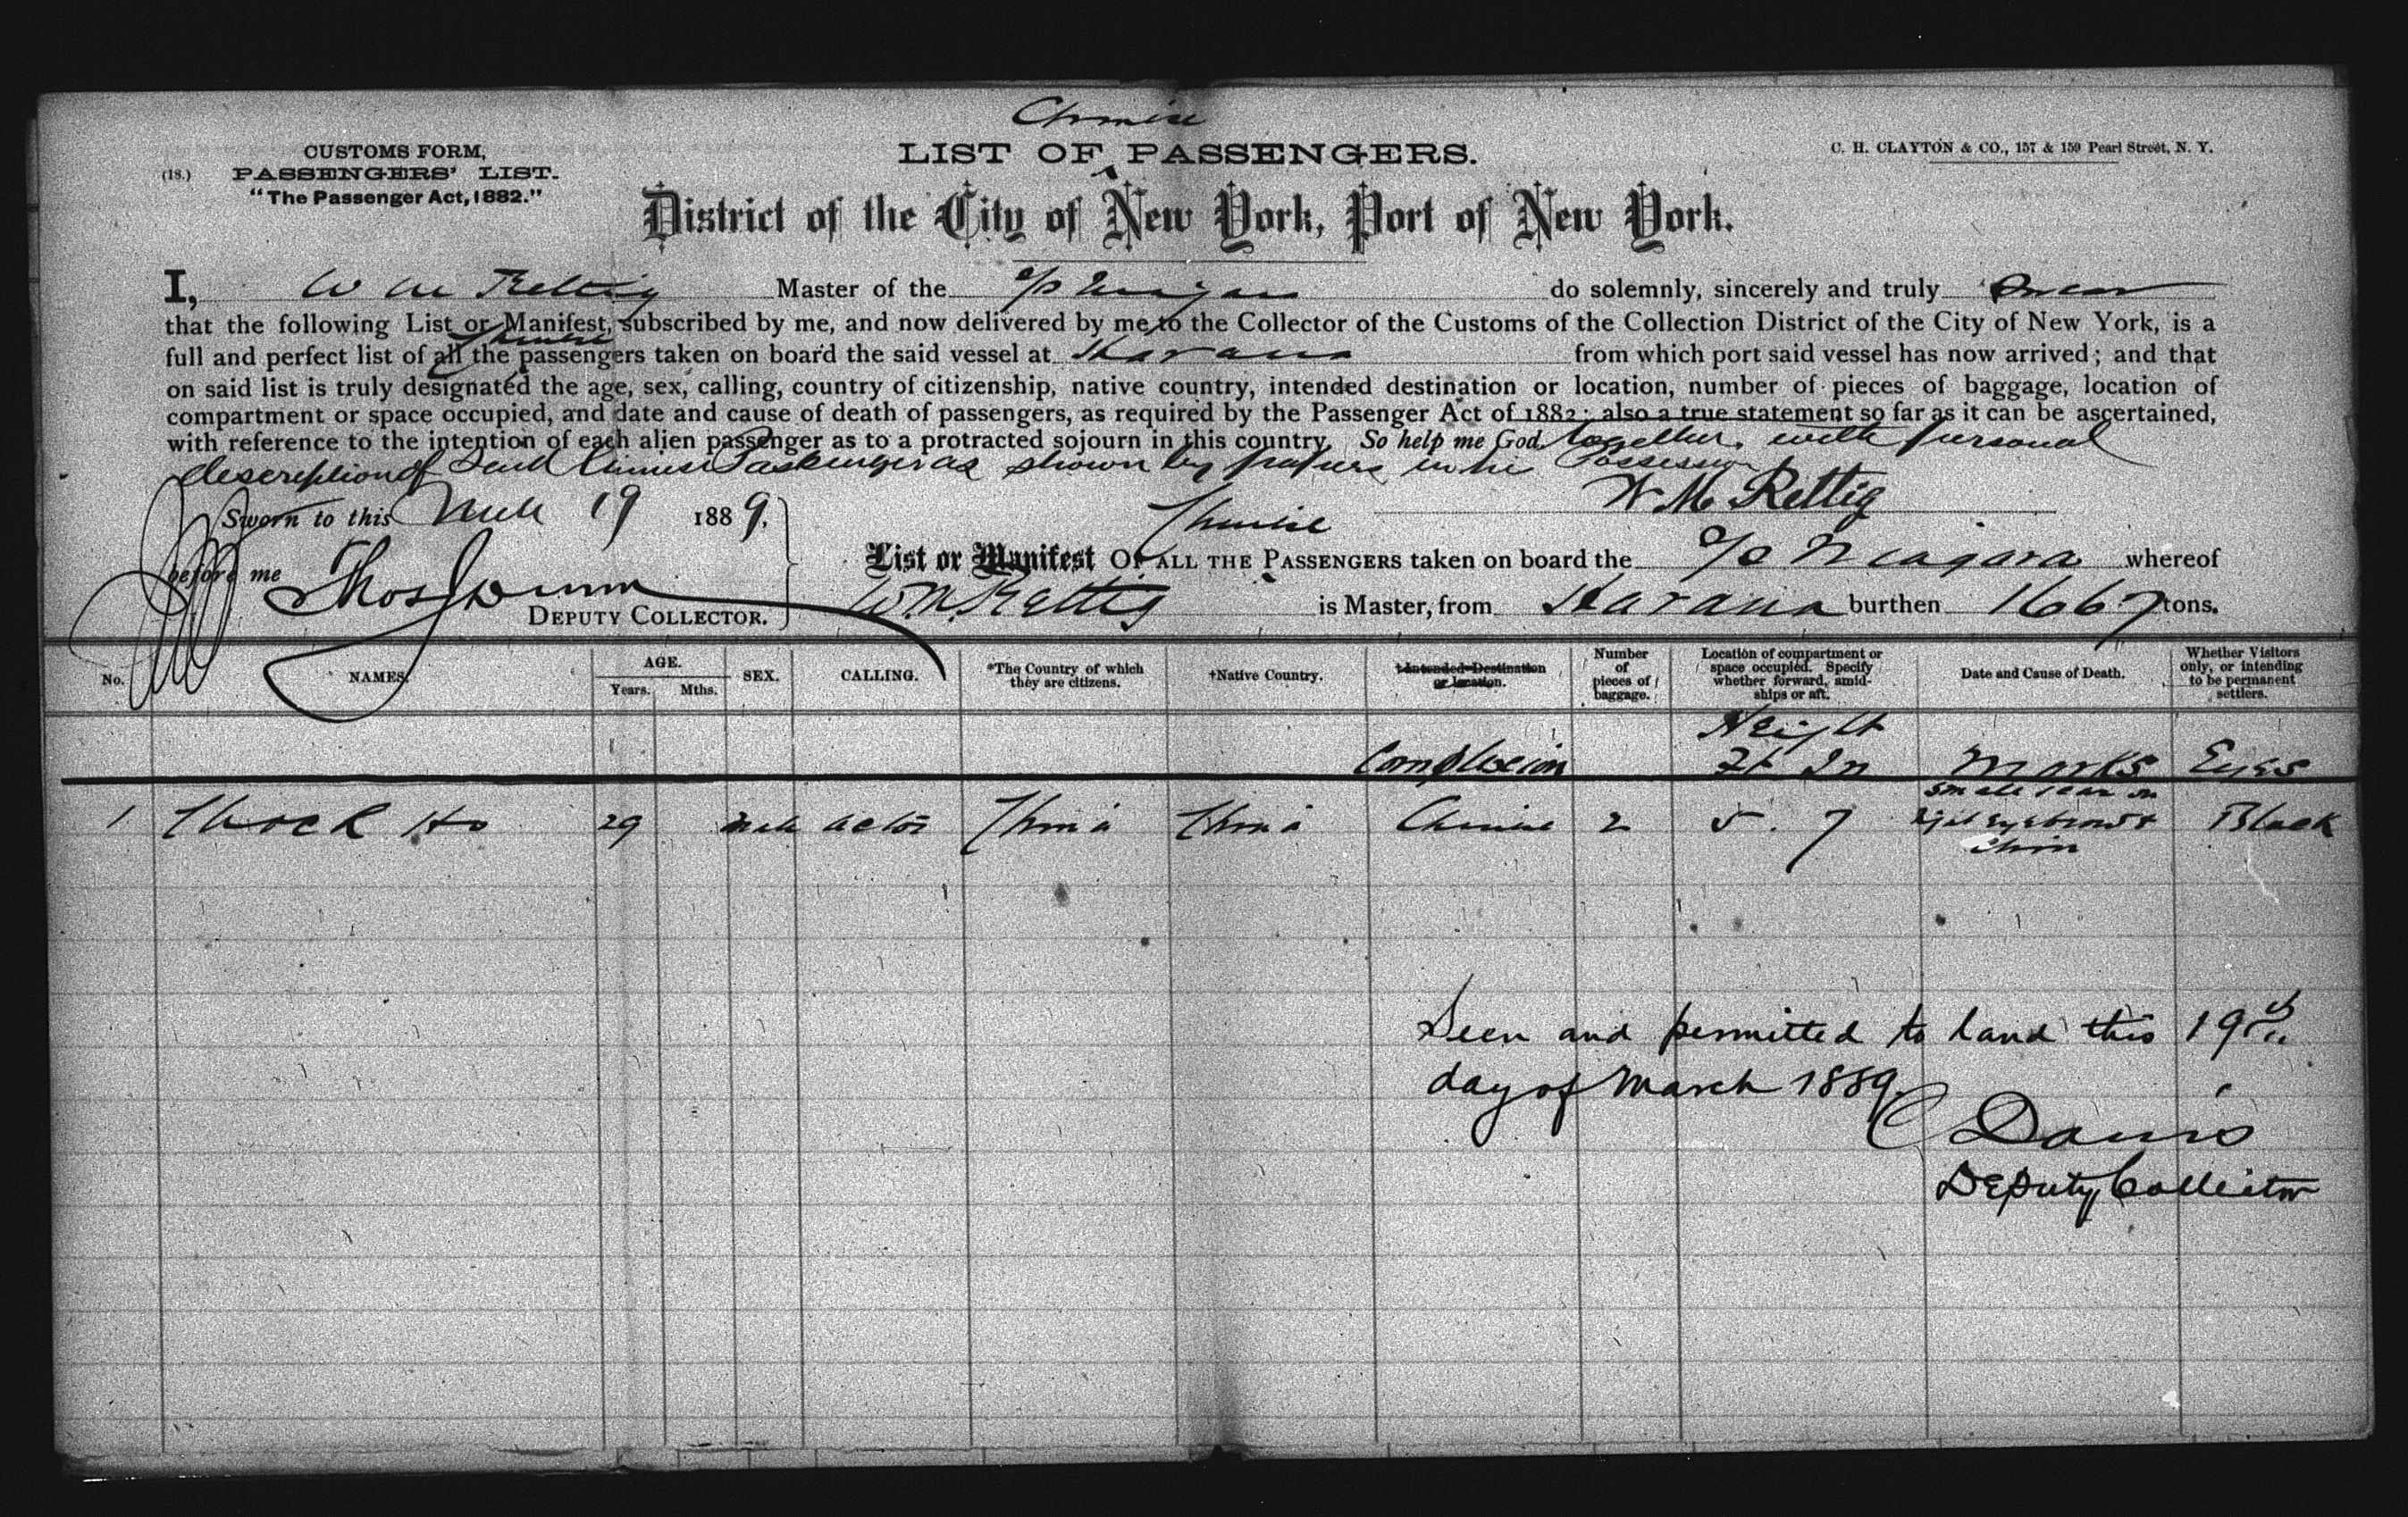 Chinese
CUSTOMS FORM,
(18.) PASSENGERS' LIST.
"The Passenger Act, 1882."
LIST OF PASSENGERS.
C. H. CLAYTON & CO., 157 & 159 Pearl Street, N. Y.
District of the City of New York, Port of New York.
I, W M Rettig Master of the S/S Niagara do solemnly, sincerely and truly Swear
that the following List or Manifest, subscribed by me, and now delivered by me to the Collector of the Customs of the Collection District of the City of New York, is a
Chinese
full and perfect list of all the passengers taken on board the said vessel at Havana from which port said vessel has now arrived; and that
on said list is truly designated the age, sex, calling, country of citizenship, native country, intended destination or location, number of pieces of baggage, location of
compartment or space occupied, and date and cause of death of passengers, as required by the Passenger Act of 1882; also a true statement so far as it can be ascertained,
with reference to the intention of each alien passenger as to a protracted sojourn in this country. So help me God. together with personal
description of Said Chinese Passengers as shown by papers in his Possession
W. M. Rettig
Sworn to this March 19 1889,
before me Thos Dunn
DEPUTY COLLECTOR.
Chinese
List or Manifest OF ALL THE PASSENGERS taken on board the S/S Niagara whereof
W. M. Rettig is Master, from Havana burthen 1667 tons.
No. NAMES. AGE. Years. Mths. SEX. CALLING. *The Country of which they are citizens. †Native Country. †Intended Destination or location. Number of pieces of baggage. Location of compartment or space occupied. Specify whether forward, amidships or aft. Date and Cause of Death. Whether Visitors only, or intending to be permanent settlers.
Complexion Height Ft In Marks Eyes
1 Chock Ho 29 Male actor China China Chinese 2 5. 7 Small scar on right eyebrow & chin Black
Seen and permitted to land this 19th
day of March 1889
C Davis
Deputy Collector